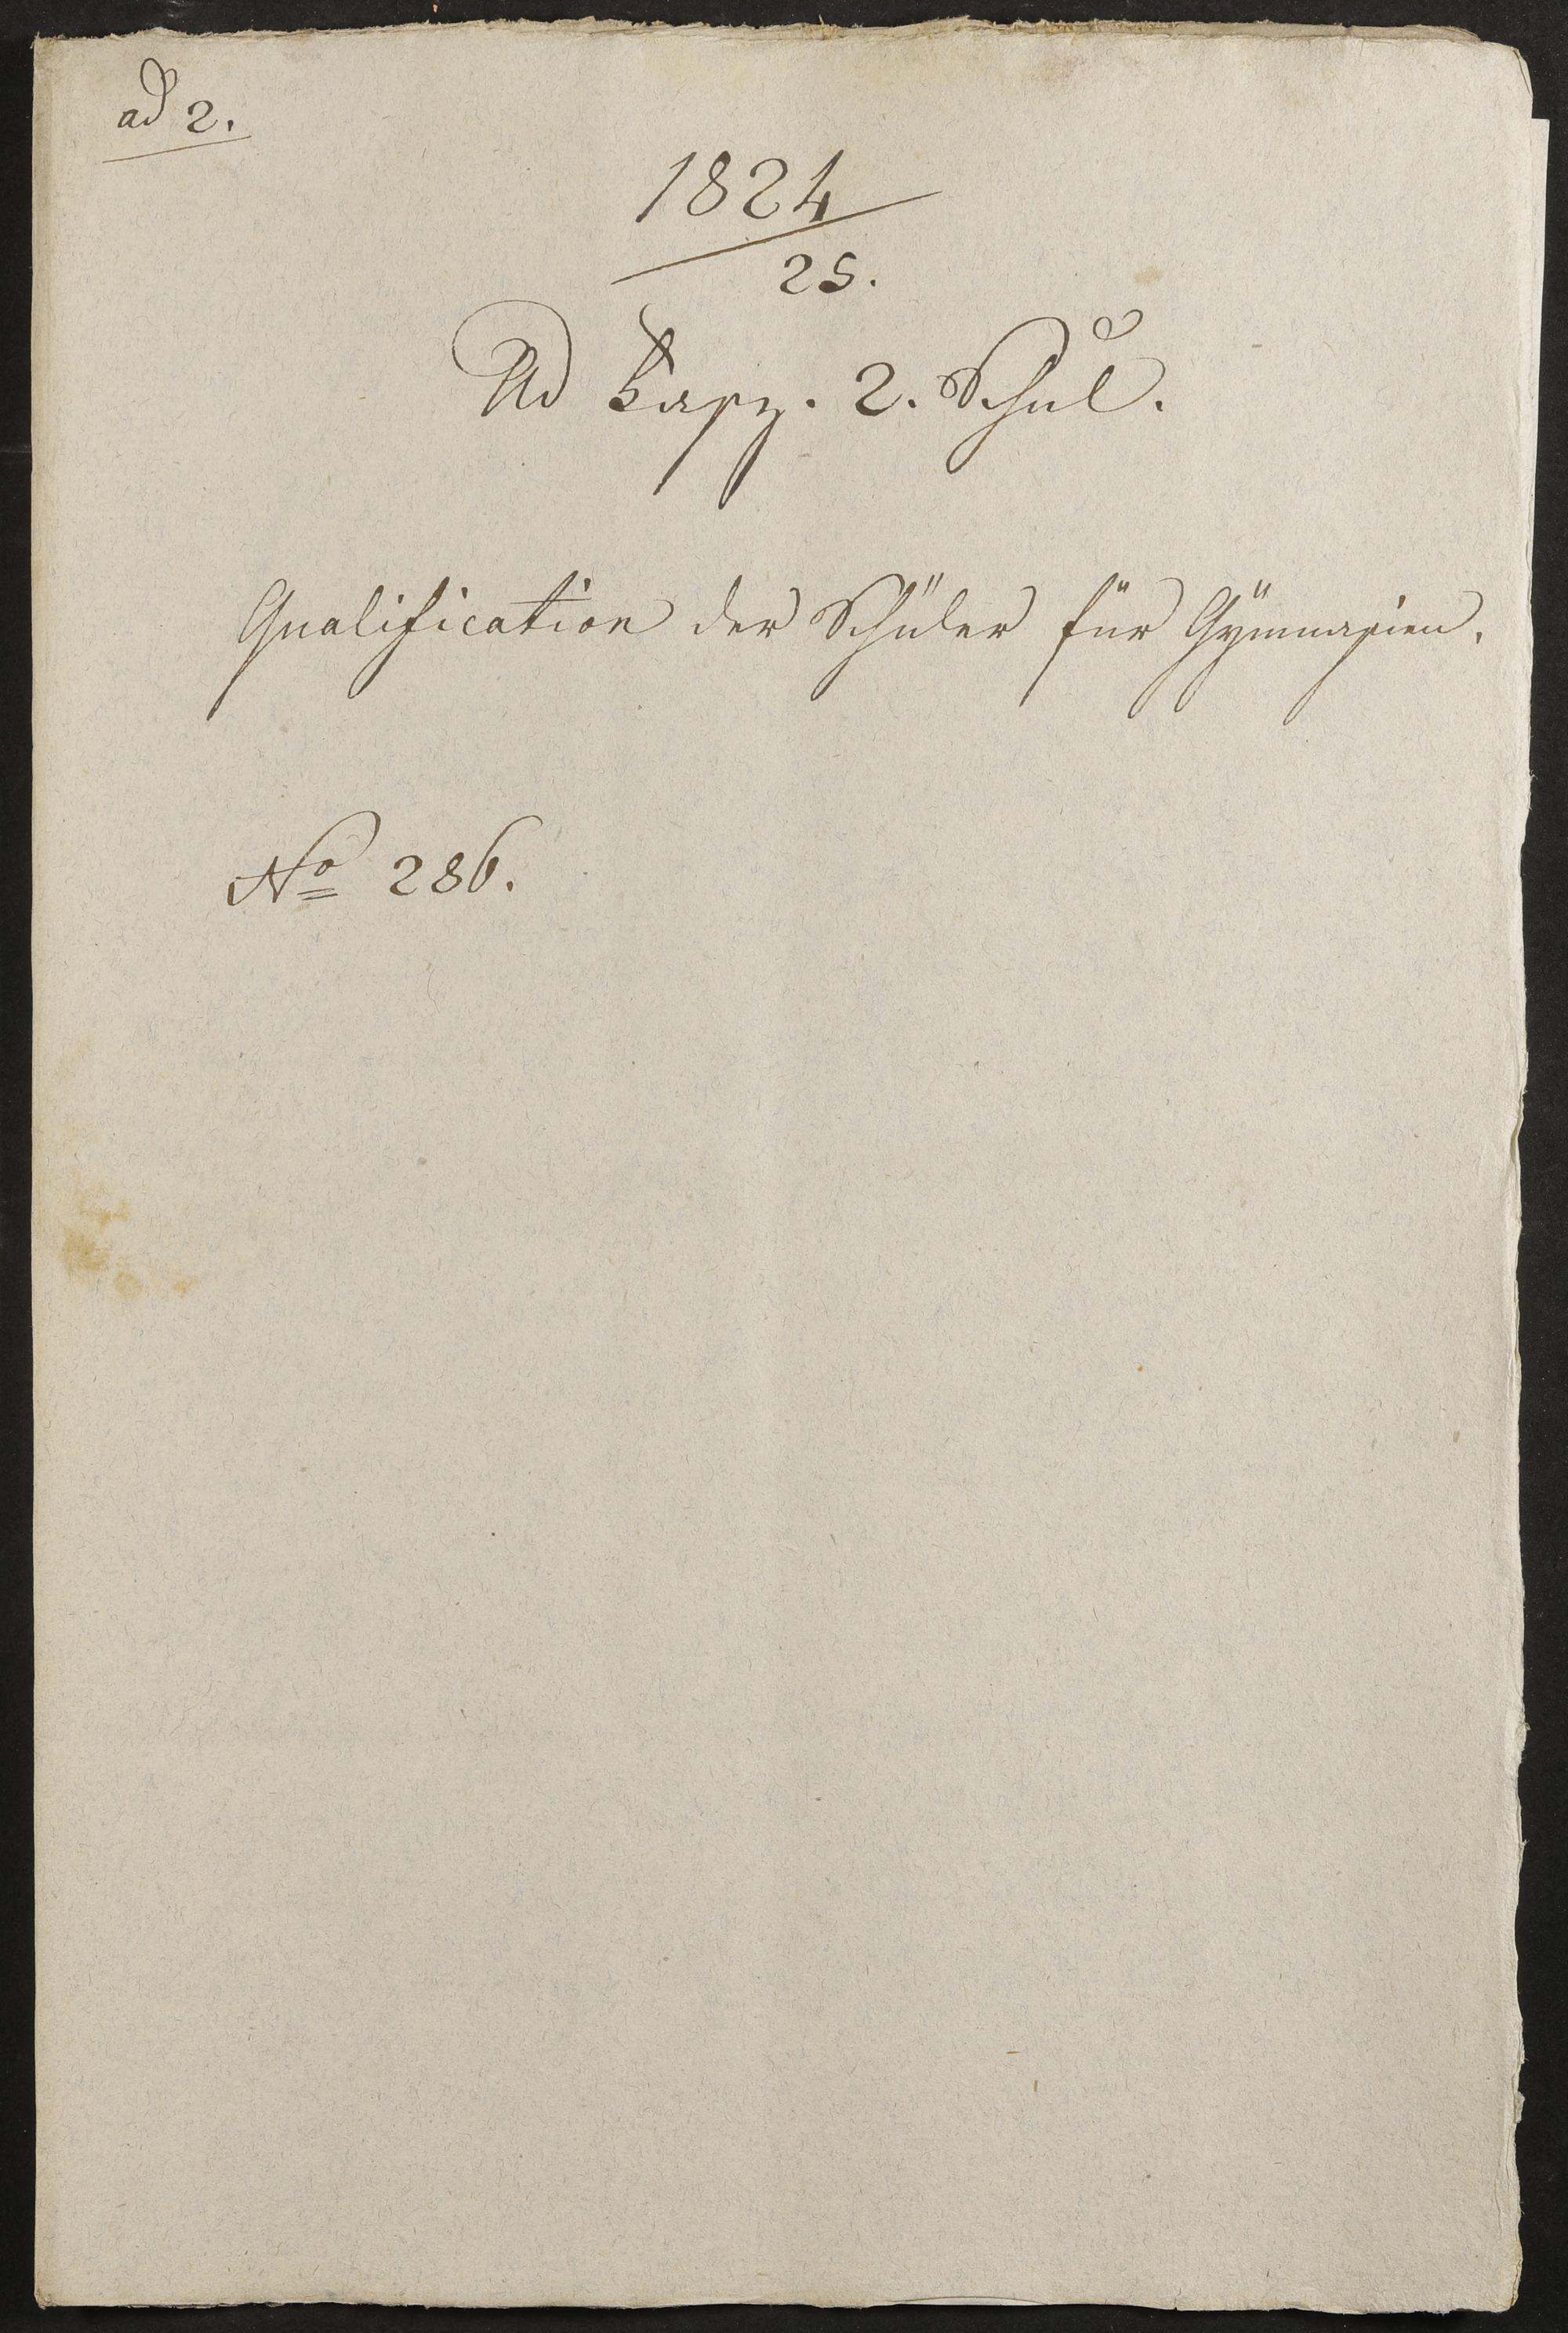 ad 2.
1824
25.
Ad Fasz. 2. Schul.
Qualification der Schüler für Gymnasien.
No 286.